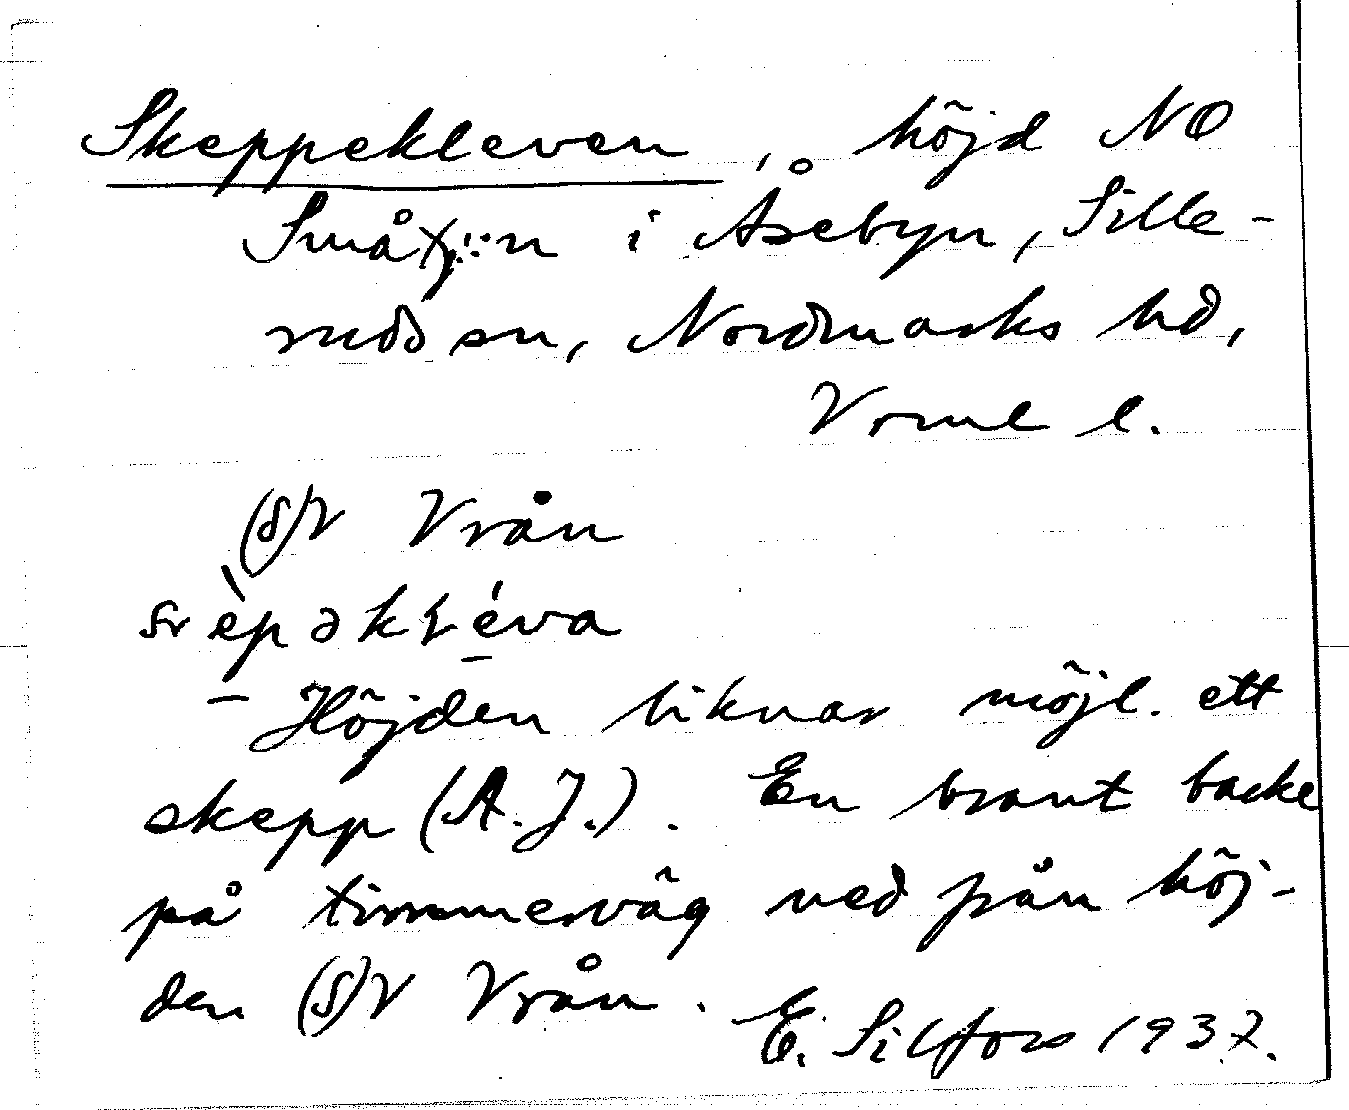 Skeppekleven, höjd NO
Småtj:n i Åsebyn, Sille-
rudssn, Nordmarks hd,
Vrml l.
(S)V Vrån
Höjden liknar möjl. ett
skepp (A.J.). En brant backe
på timmerväg ned från höj-
den (S)V Vrån.
E. Silfors 1937.